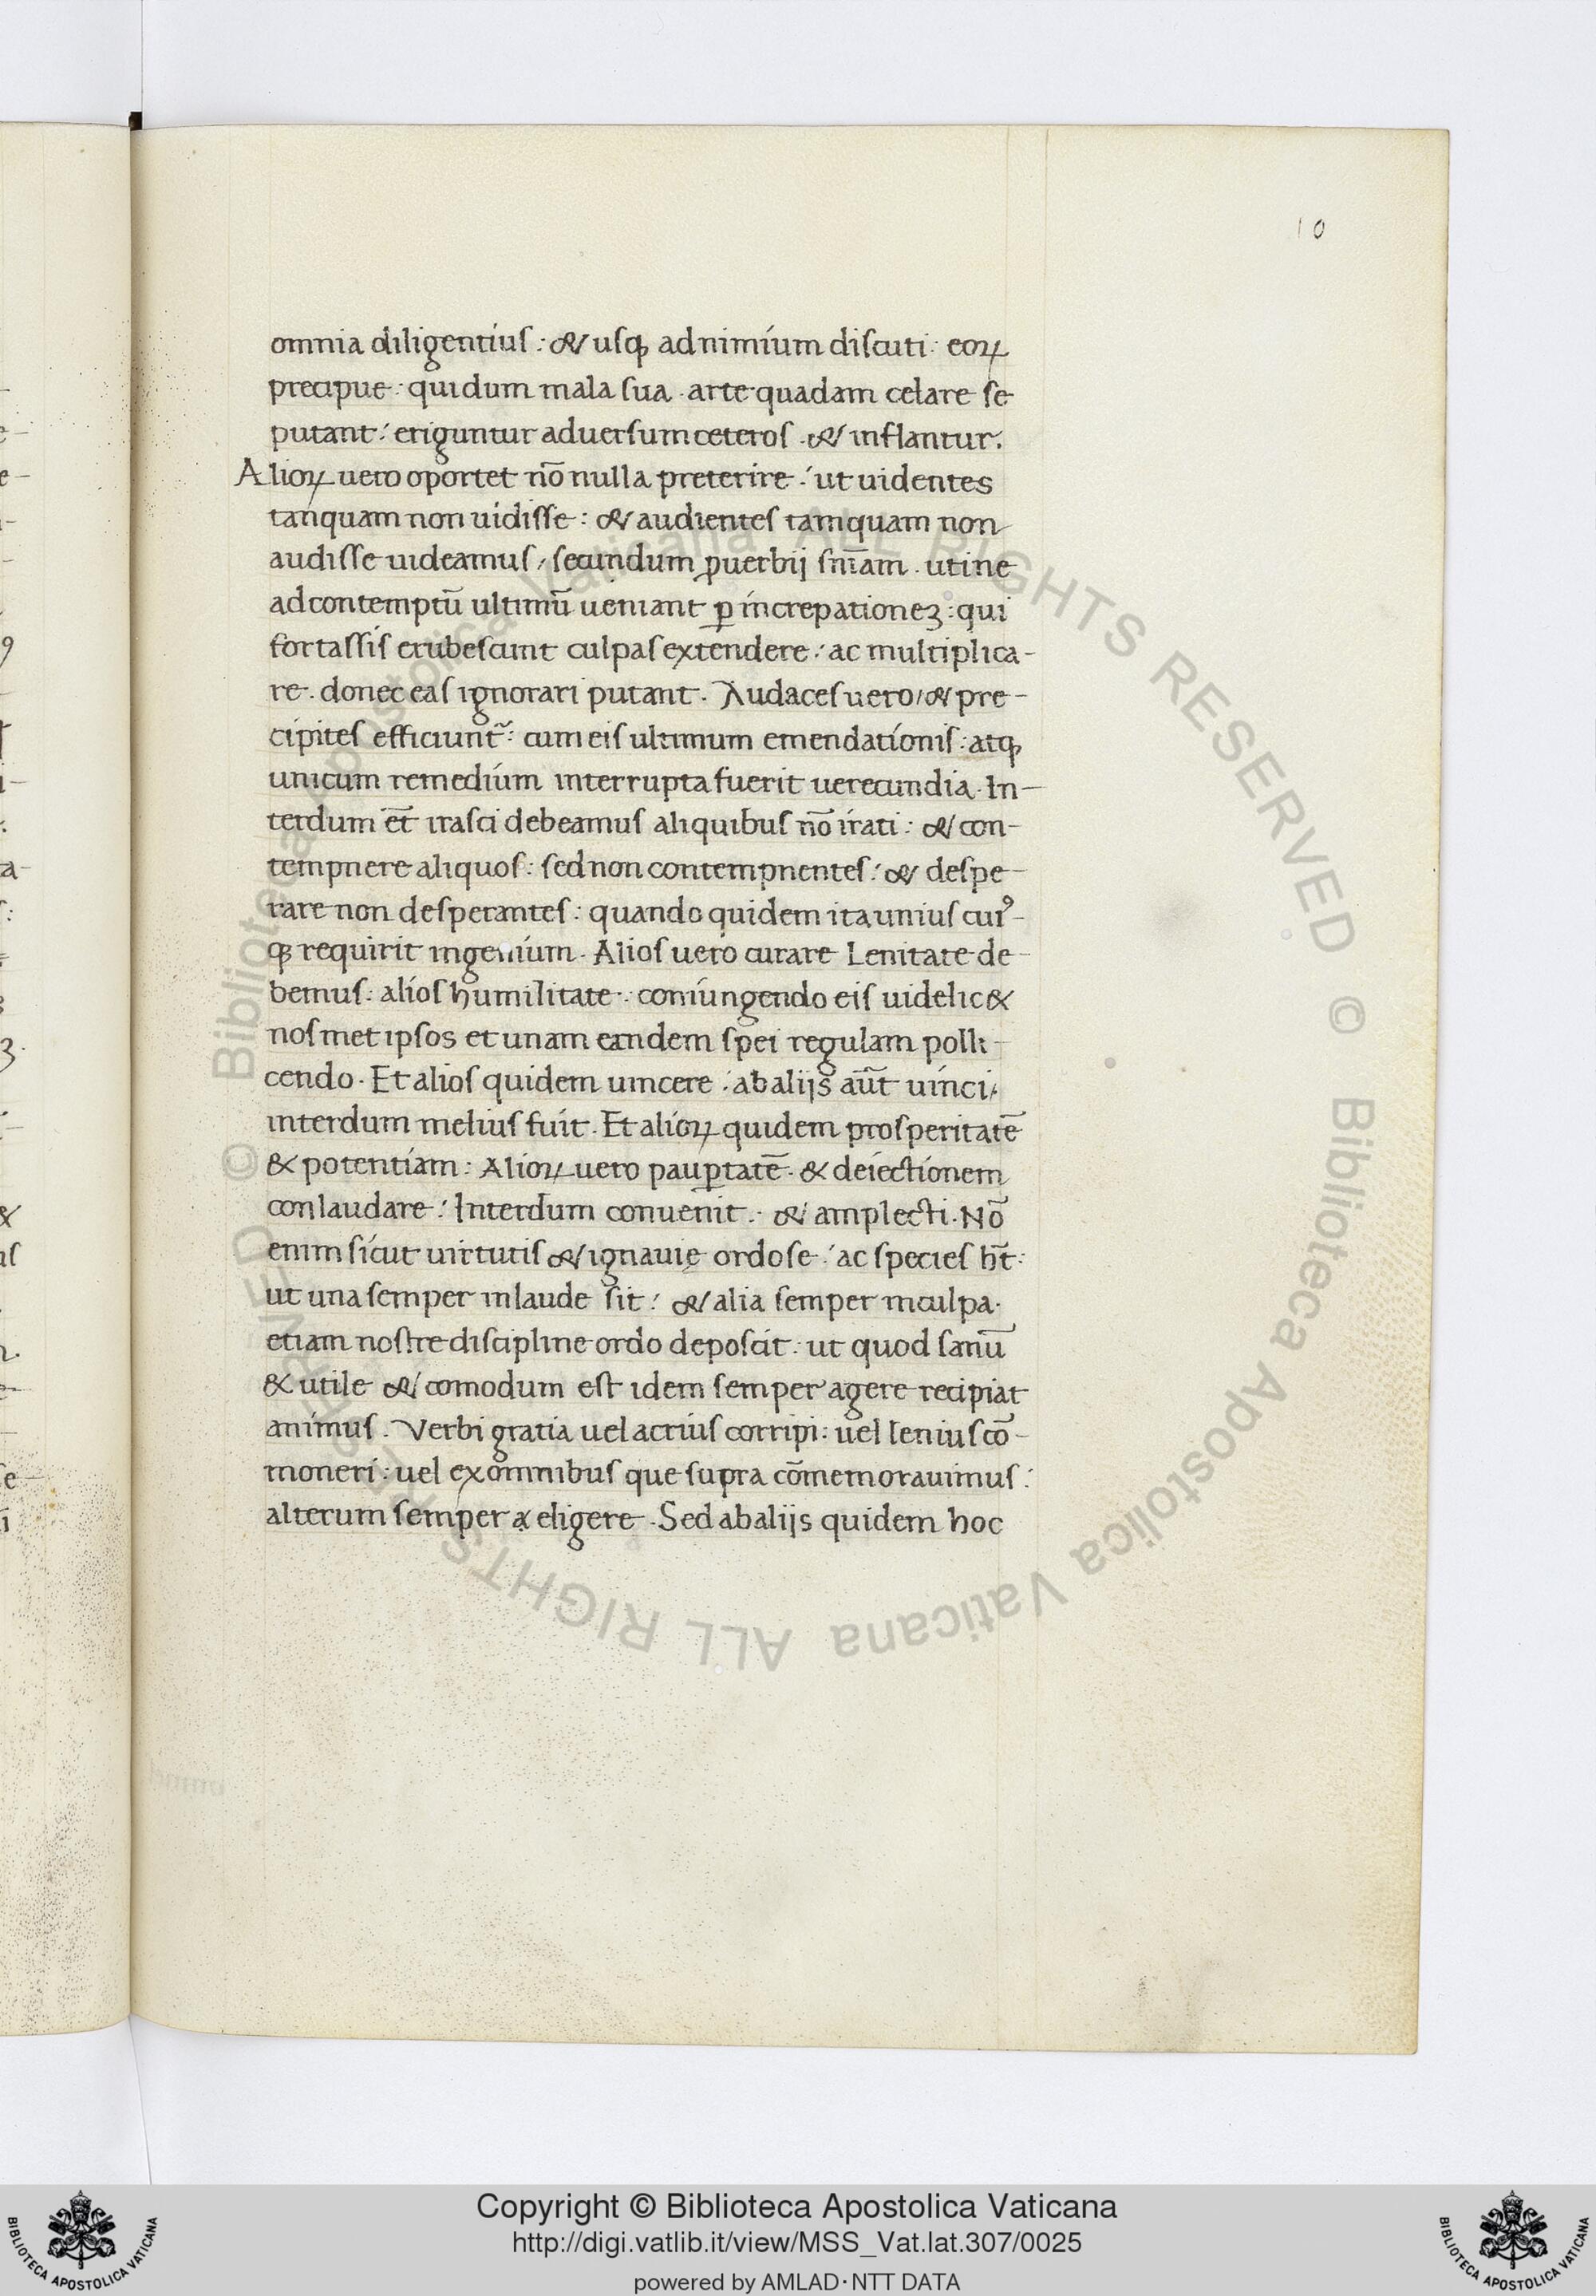 10
omnia diligentius : & usq; ad nimium discuti : eoꝝ
precipue : qui dum mala sua . arte quadam celare se
putant : eriguntur aduersum ceteros . & inflantur .
Alioꝝ uero oportet nō nulla preterire : ut uidentes
tanquam non uidisse : & audientes tamquam non
audisse uideamus , secundum ꝓuerbij sniam̄ . ut ine
ad contemptū ultimū ueniant ꝑ increpationeʒ : qui
fortassis erubescunt culpas extendere : ac multiplica-
re . donec eas ignorari putant . Audaces uero , & pre-
cipites efficiunt̃ : cum eis ultimum emendationis : atq;
unicum remedium interrupta fuerit uerecundia . In-
terdum et̄ irasci debeamus aliquibus nō irati : & con-
tempnere aliquos : sed non contempnentes : & despe-
rare non desperantes : quando quidem ita unius cuiꝰ-
q; requirit ingenium . Alios uero curare Lenitate de-
bemus : alios humilitate . coniungendo eis uidelic&
nos met ipsos et unam eandem spei regulam polli-
cendo . Et alios quidem uincere : ab alijs aūt uinci ,
interdum melius fuit . Et alioꝝ quidem prosperitatē
& potentiam : Alioꝝ uero pauꝑtatē . & deiectionem
conlaudare : Interdum conuenit . & amplecti . Nō
enim sicut uirtutis & ignauię ordo se : ac species ht̄ :
ut una semper in laude sit : & alia semper in culpa .
etiam nostre discipline ordo deposcit : ut quod sanū
& utile & comodum est idem semper agere recipiat
animus . Verbi gratia uel acrius corripi : uel lenius cō-
moneri : uel ex omnibus que supra cōmemorauimus :
alterum semper eligere . Sed ab alijs quidem hoc
© Biblioteca Apostolica Vaticana ALL RIGHTS RESERVED © Biblioteca Apostolica Vaticana ALL RIGHTS RESERVED
Copyright © Biblioteca Apostolica Vaticana
http://digi.vatlib.it/view/MSS_Vat.lat.307/0025
powered by AMLAD·NTT DATA
BIBLIOTECA APOSTOLICA VATICANA
BIBLIOTECA APOSTOLICA VATICANA